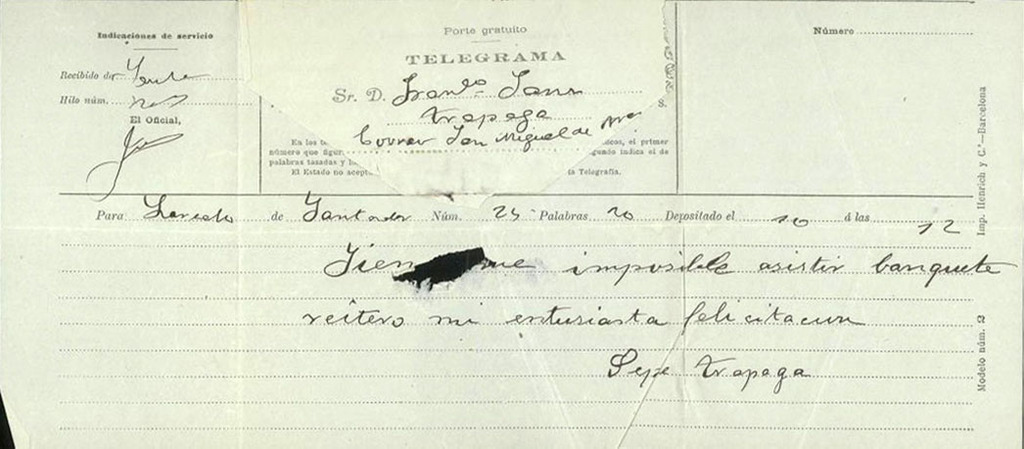 Indicaciones de servicio
Recibido de
Hilo núm.
El Oficial,
Porte gratuito
TELEGRAMA
Sr. D. Franco Sanz
Trapaga
Correo San Miguel de
S.
En los te
icos, el primer
número que figur
gundo indica el de
palabras tasadas y l
El Estado no acept
la Telegrafía.
Número
Para Laredo de Santander Núm. 25 Palabras 20 Depositado el 10 á las 12
me imposible asistir banquete
reitero mi entusiasta felicitacion
Pepe Trapaga
Imp. Henrich y C.ª—Barcelona
Modelo núm. 12